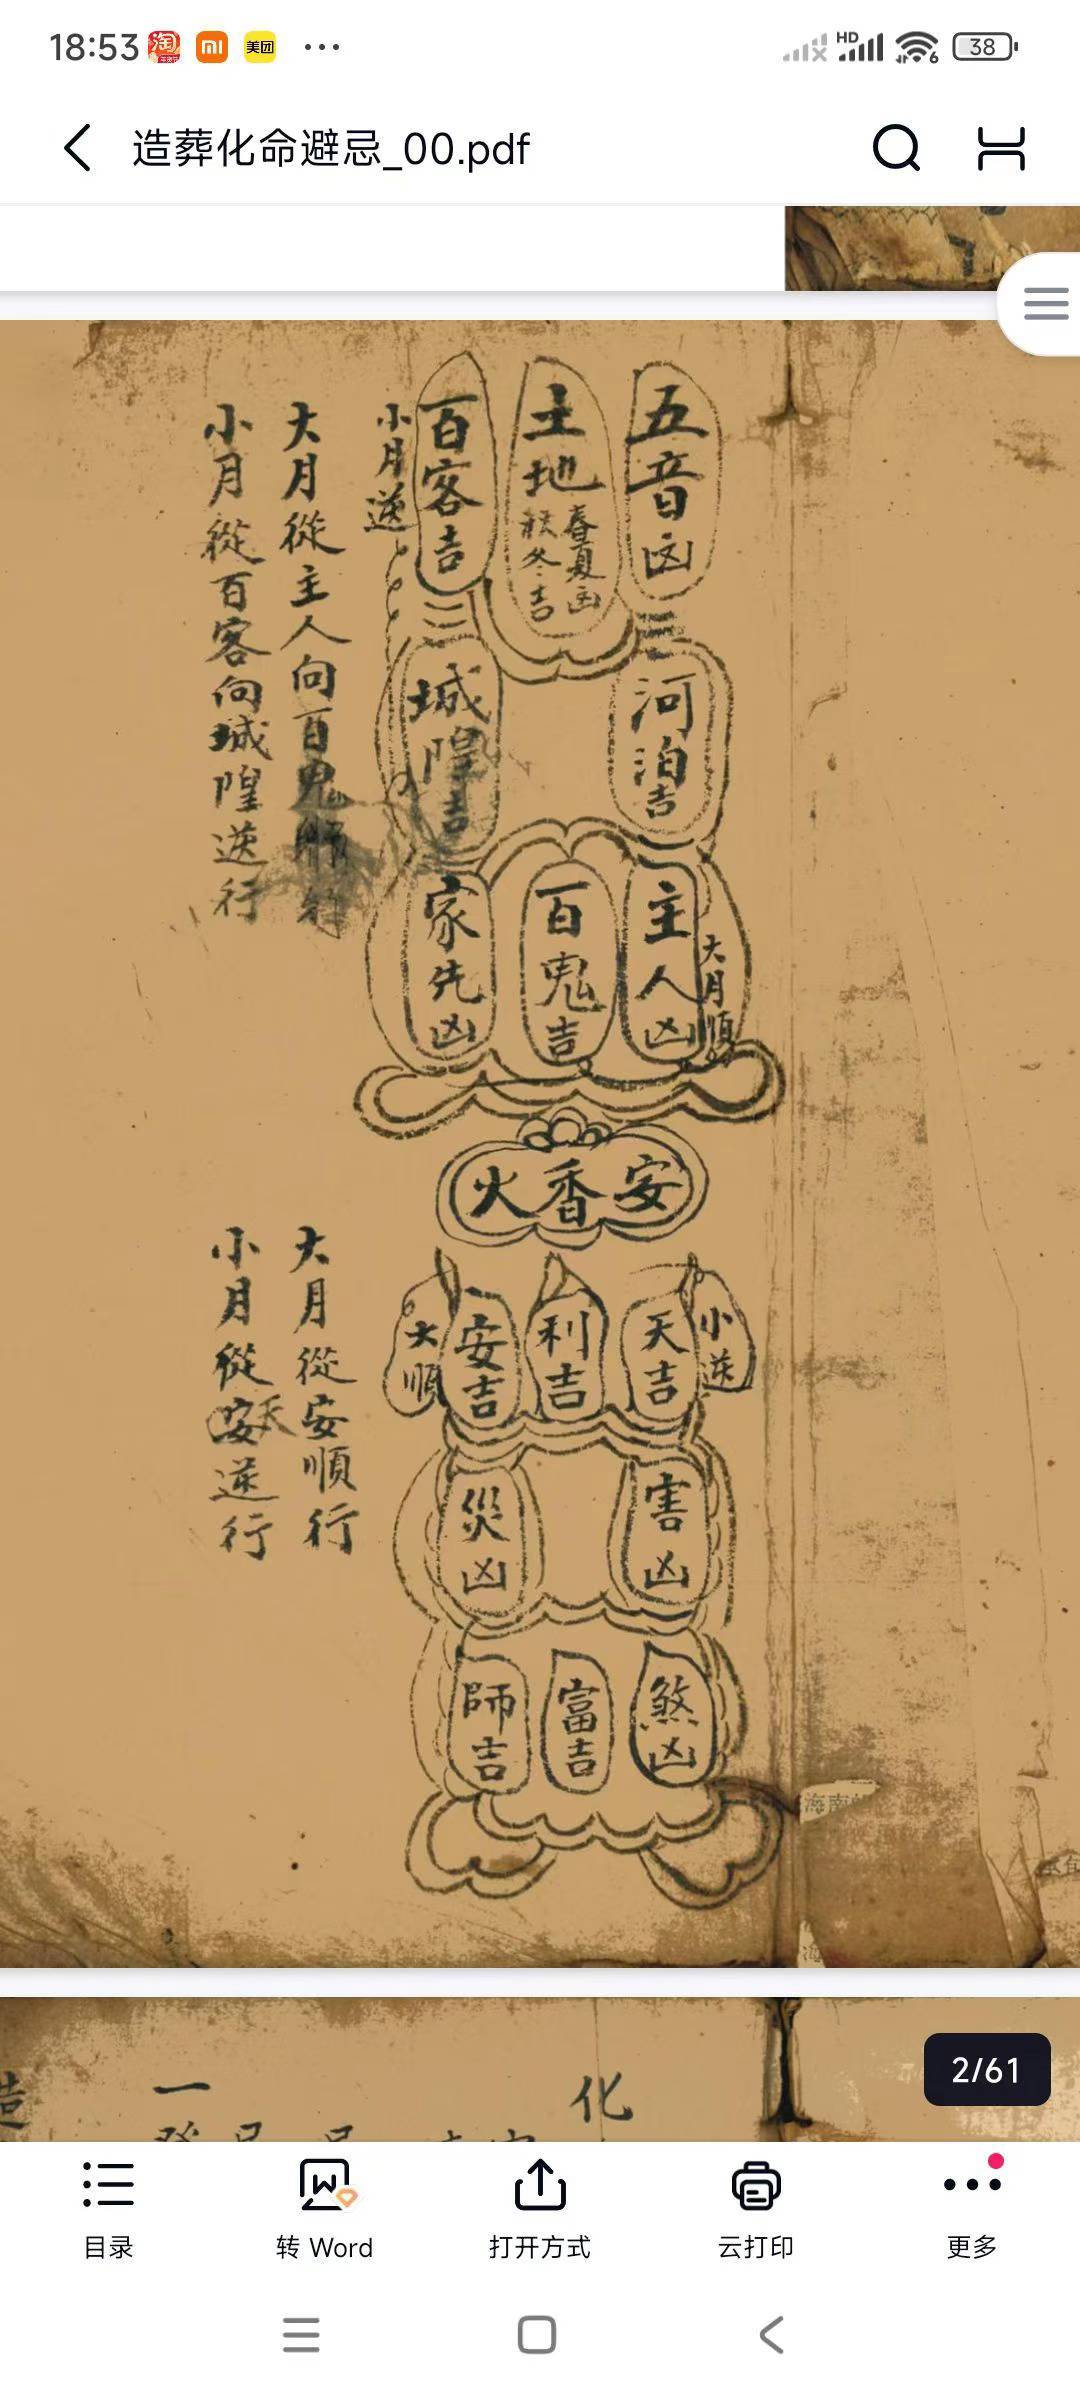 18:53
淘
mi
美团
HD
6
38
造葬化命避忌_00.pdf
五音凶
土地
春夏凶
秋冬吉
百客吉
小月逆
大月從主人向百鬼順行
小月從百客向城隍逆行
三
三
河泊吉
城隍吉
主人凶
大月順
百鬼吉
家先凶
火香安
天吉
小逆
利吉
安吉
大順
大月從安順行
小月從天逆行
害凶
災凶
煞凶
富吉
師吉
海南
化
一
2/61
目录
转 Word
打开方式
云打印
更多